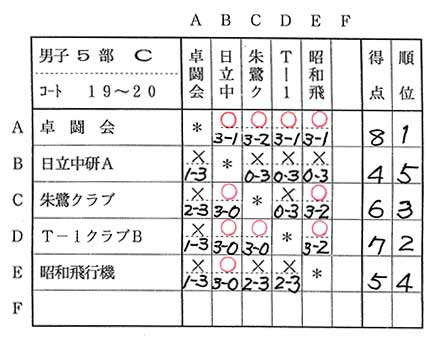 A B C D E F
男子5部 C 卓闘会 日立中 朱鷺ク T－1 昭和飛 得点 順位
コート 19～20
A 卓闘会 * ○ 3-1 ○ 3-2 ○ 3-1 ○ 3-1 8 1
B 日立中研A × 1-3 * × 0-3 × 0-3 × 0-3 4 5
C 朱鷺クラブ × 2-3 ○ 3-0 * × 0-3 ○ 3-2 6 3
D T－1クラブB × 1-3 ○ 3-0 ○ 3-0 * ○ 3-2 7 2
E 昭和飛行機 × 1-3 ○ 3-0 × 2-3 × 2-3 * 5 4
F